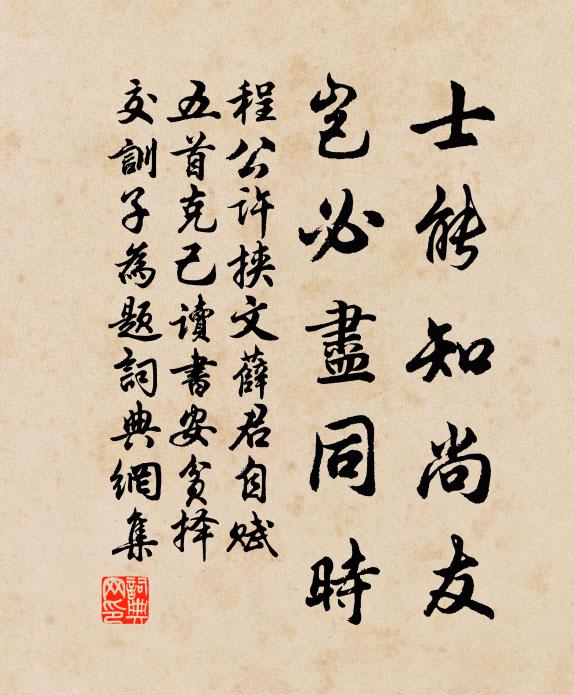 士能知尚友
豈必盡同時
程公許挾文薛君自賦
五首克己讀書安貧擇
交訓子為題詞典網集
詞典網印